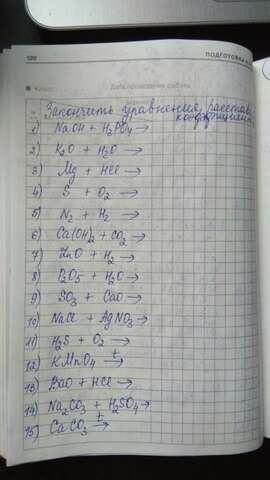 120
ПОДГОТОВКА
Класс
Дата проведения работы
Закончить уравнения, расставить
коэффициенты
1) NaOH + H₃PO₄ →
2) K₂O + H₂O →
3) Mg + HCl →
4) S + O₂ →
5) N₂ + H₂ →
6) Ca(OH)₂ + CO₂ →
7) ZnO + H₂ →
8) P₂O₅ + H₂O →
9) SO₃ + CaO →
10) NaCl + AgNO₃ →
11) H₂S + O₂ →
12) KMnO₄ t→
13) BaO + HCl →
14) Na₂CO₃ + H₂SO₄ →
15) CaCO₃ t→